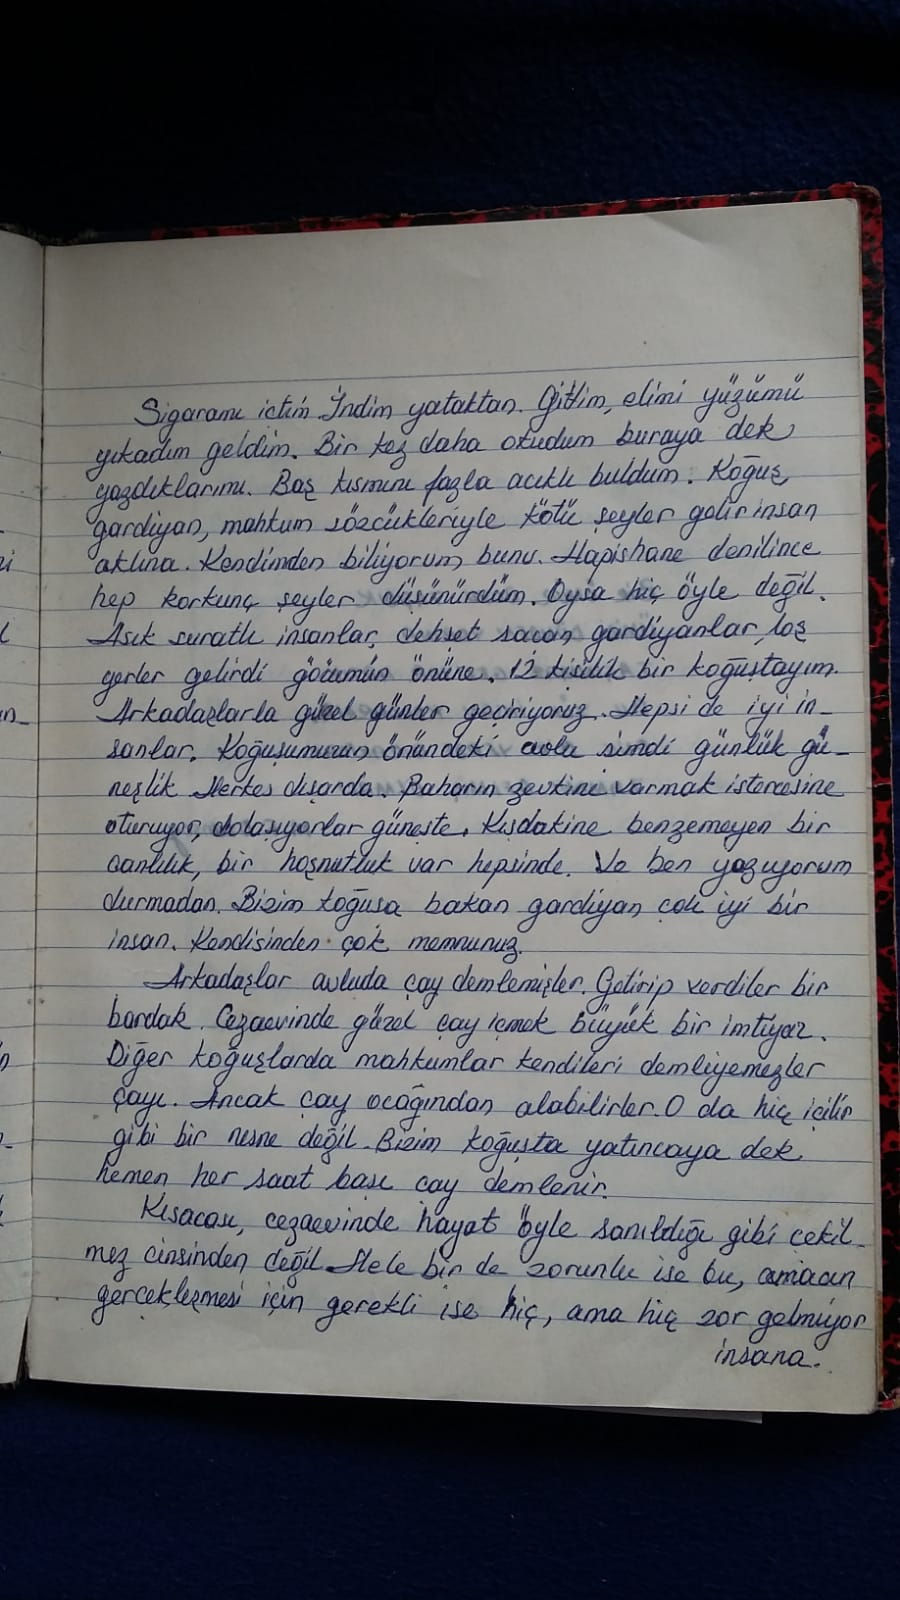 Sigaramı içtim İndim yataktan. Gittim, elimi yüzümü
yıkadım geldim. Bir kez daha okudum buraya dek
yazdıklarımı. Baş kısmını fazla acıklı buldum. Koğuş
gardiyan, mahkum sözcükleriyle kötü şeyler gelir insan
aklına. Kendimden biliyorum bunu. Hapishane denilince
hep korkunç şeyler düşünürdüm. Oysa hiç öyle değil.
Asık suratlı insanlar, dehşet saçan gardiyanlar, loş
yerler gelirdi gözümün önüne. 12 kişilik bir koğuştayım.
Arkadaşlarla güzel günler geçiriyoruz. Hepsi de iyi in-
sanlar. Koğuşumuzun önündeki avlu şimdi günlük gü-
neşlik Herkes dışarda. Baharın zevkine varmak istercesine
oturuyor, dolaşıyorlar güneşte. Kışdakine benzemeyen bir
canlılık, bir hoşnutluk var hepsinde. Ve ben yazıyorum
durmadan. Bizim koğuşa bakan gardiyan çok iyi bir
insan. Kendisinden çok memnunuz.
Arkadaşlar avluda çay demlemişler. Getirip verdiler bir
bardak. Cezaevinde güzel çay içmek büyük bir imtiyaz.
Diğer koğuşlarda mahkumlar kendileri demliyemezler
çayı. Ancak çay ocağından alabilirler. O da hiç içilir
gibi bir nesne değil Bizim koğuşta yatıncaya dek
hemen her saat başı çay demlenir.
Kısacası, cezaevinde hayat öyle sanıldığı gibi çekil-
mez cinsinden değil Hele bir de zorunlu ise bu, amacın
gerçekleşmesi için gerekli ise hiç, ama hiç zor gelmiyor
insana.